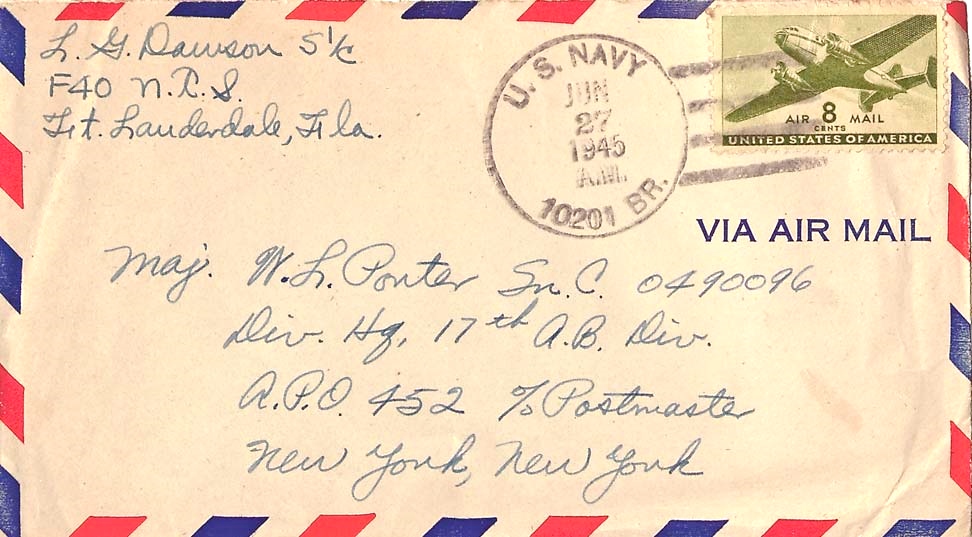 L. G. Dawson S 1/c
F40 N.T.S.
Ft. Lauderdale, Fla.
U. S. NAVY
JUN
27
1945
A.M.
10201 BR.
AIR 8 MAIL
CENTS
UNITED STATES OF AMERICA
VIA AIR MAIL
Maj. W. L. Porter Sn. C. 0490096
Div. Hq. 17th A.B. Div.
A.P.O. 452 % Postmaster
New York, New York